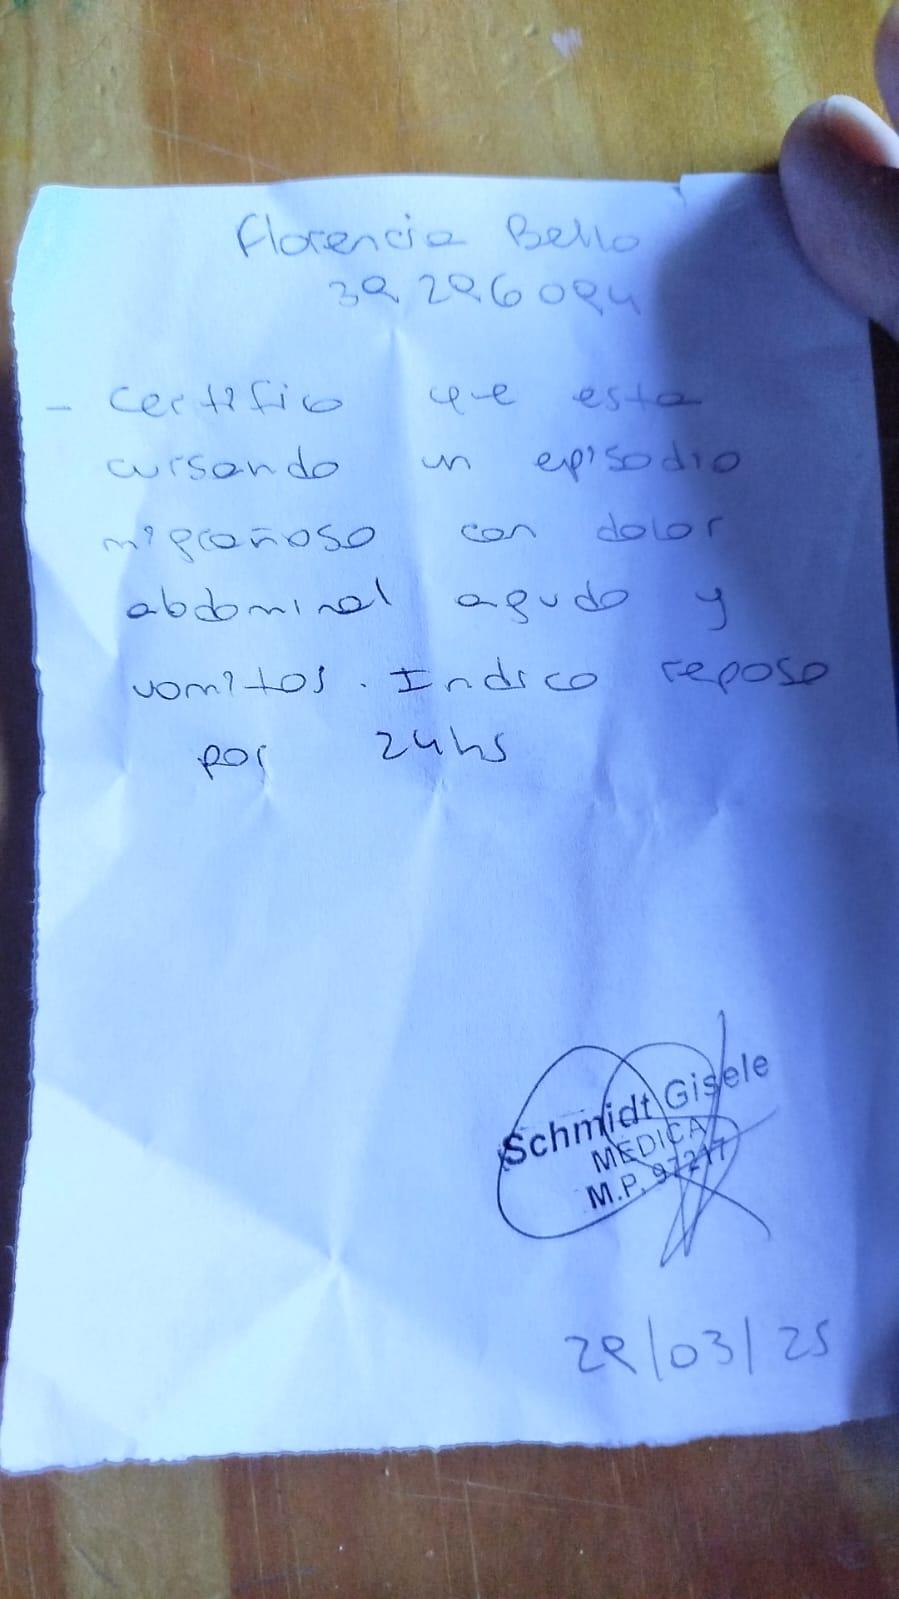 Florencia Bello
39 296 094
- Certifico que esta
cursando un episodio
migrañoso con dolor
abdominal agudo y
vomitos. Indico reposo
por 24hs
Schmidt Gisele
MEDICA
M.P. 97217
29/03/25